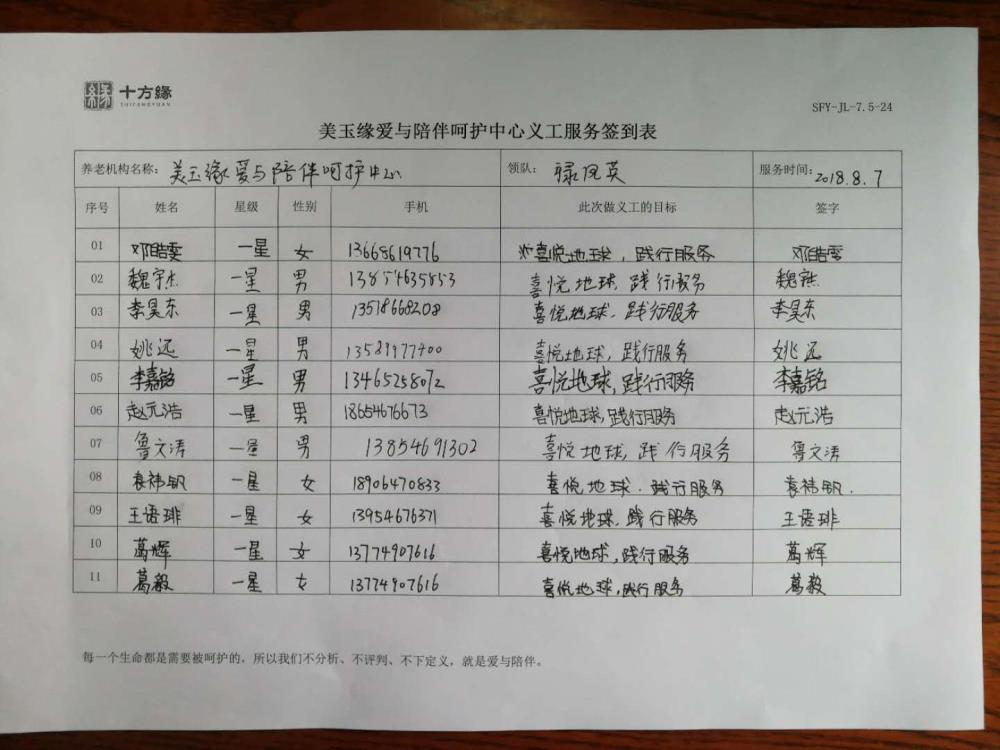 十方緣
SHIFANGYUAN
SFY-JL-7.5-24
美玉缘爱与陪伴呵护中心义工服务签到表
养老机构名称：美玉缘爱与陪伴呵护中心 领队：禄凤英 服务时间：2018.8.7
序号 姓名 星级 性别 手机 此次做义工的目标 签字
01 邓皓雯 一星 女 13668619776 喜悦地球，践行服务 邓皓雯
02 魏宇杰 一星 男 13854635853 喜悦地球，践行服务 魏宇杰
03 李昊东 一星 男 13518668208 喜悦地球，践行服务 李昊东
04 姚远 一星 男 13589977400 喜悦地球，践行服务 姚远
05 李嘉铭 一星 男 13465258072 喜悦地球，践行服务 李嘉铭
06 赵元浩 一星 男 18654676673 喜悦地球，践行服务 赵元浩
07 鲁文涛 一星 男 13854691302 喜悦地球，践行服务 鲁文涛
08 袁祎钒 一星 女 18906470833 喜悦地球．践行服务 袁祎钒．
09 王语琲 一星 女 13954676371 喜悦地球，践行服务 王语琲
10 葛辉 一星 女 13774907616 喜悦地球，践行服务 葛辉
11 葛毅 一星 女 13774907616 喜悦地球，践行服务 葛毅
每一个生命都是需要被呵护的，所以我们不分析、不评判、不下定义，就是爱与陪伴。